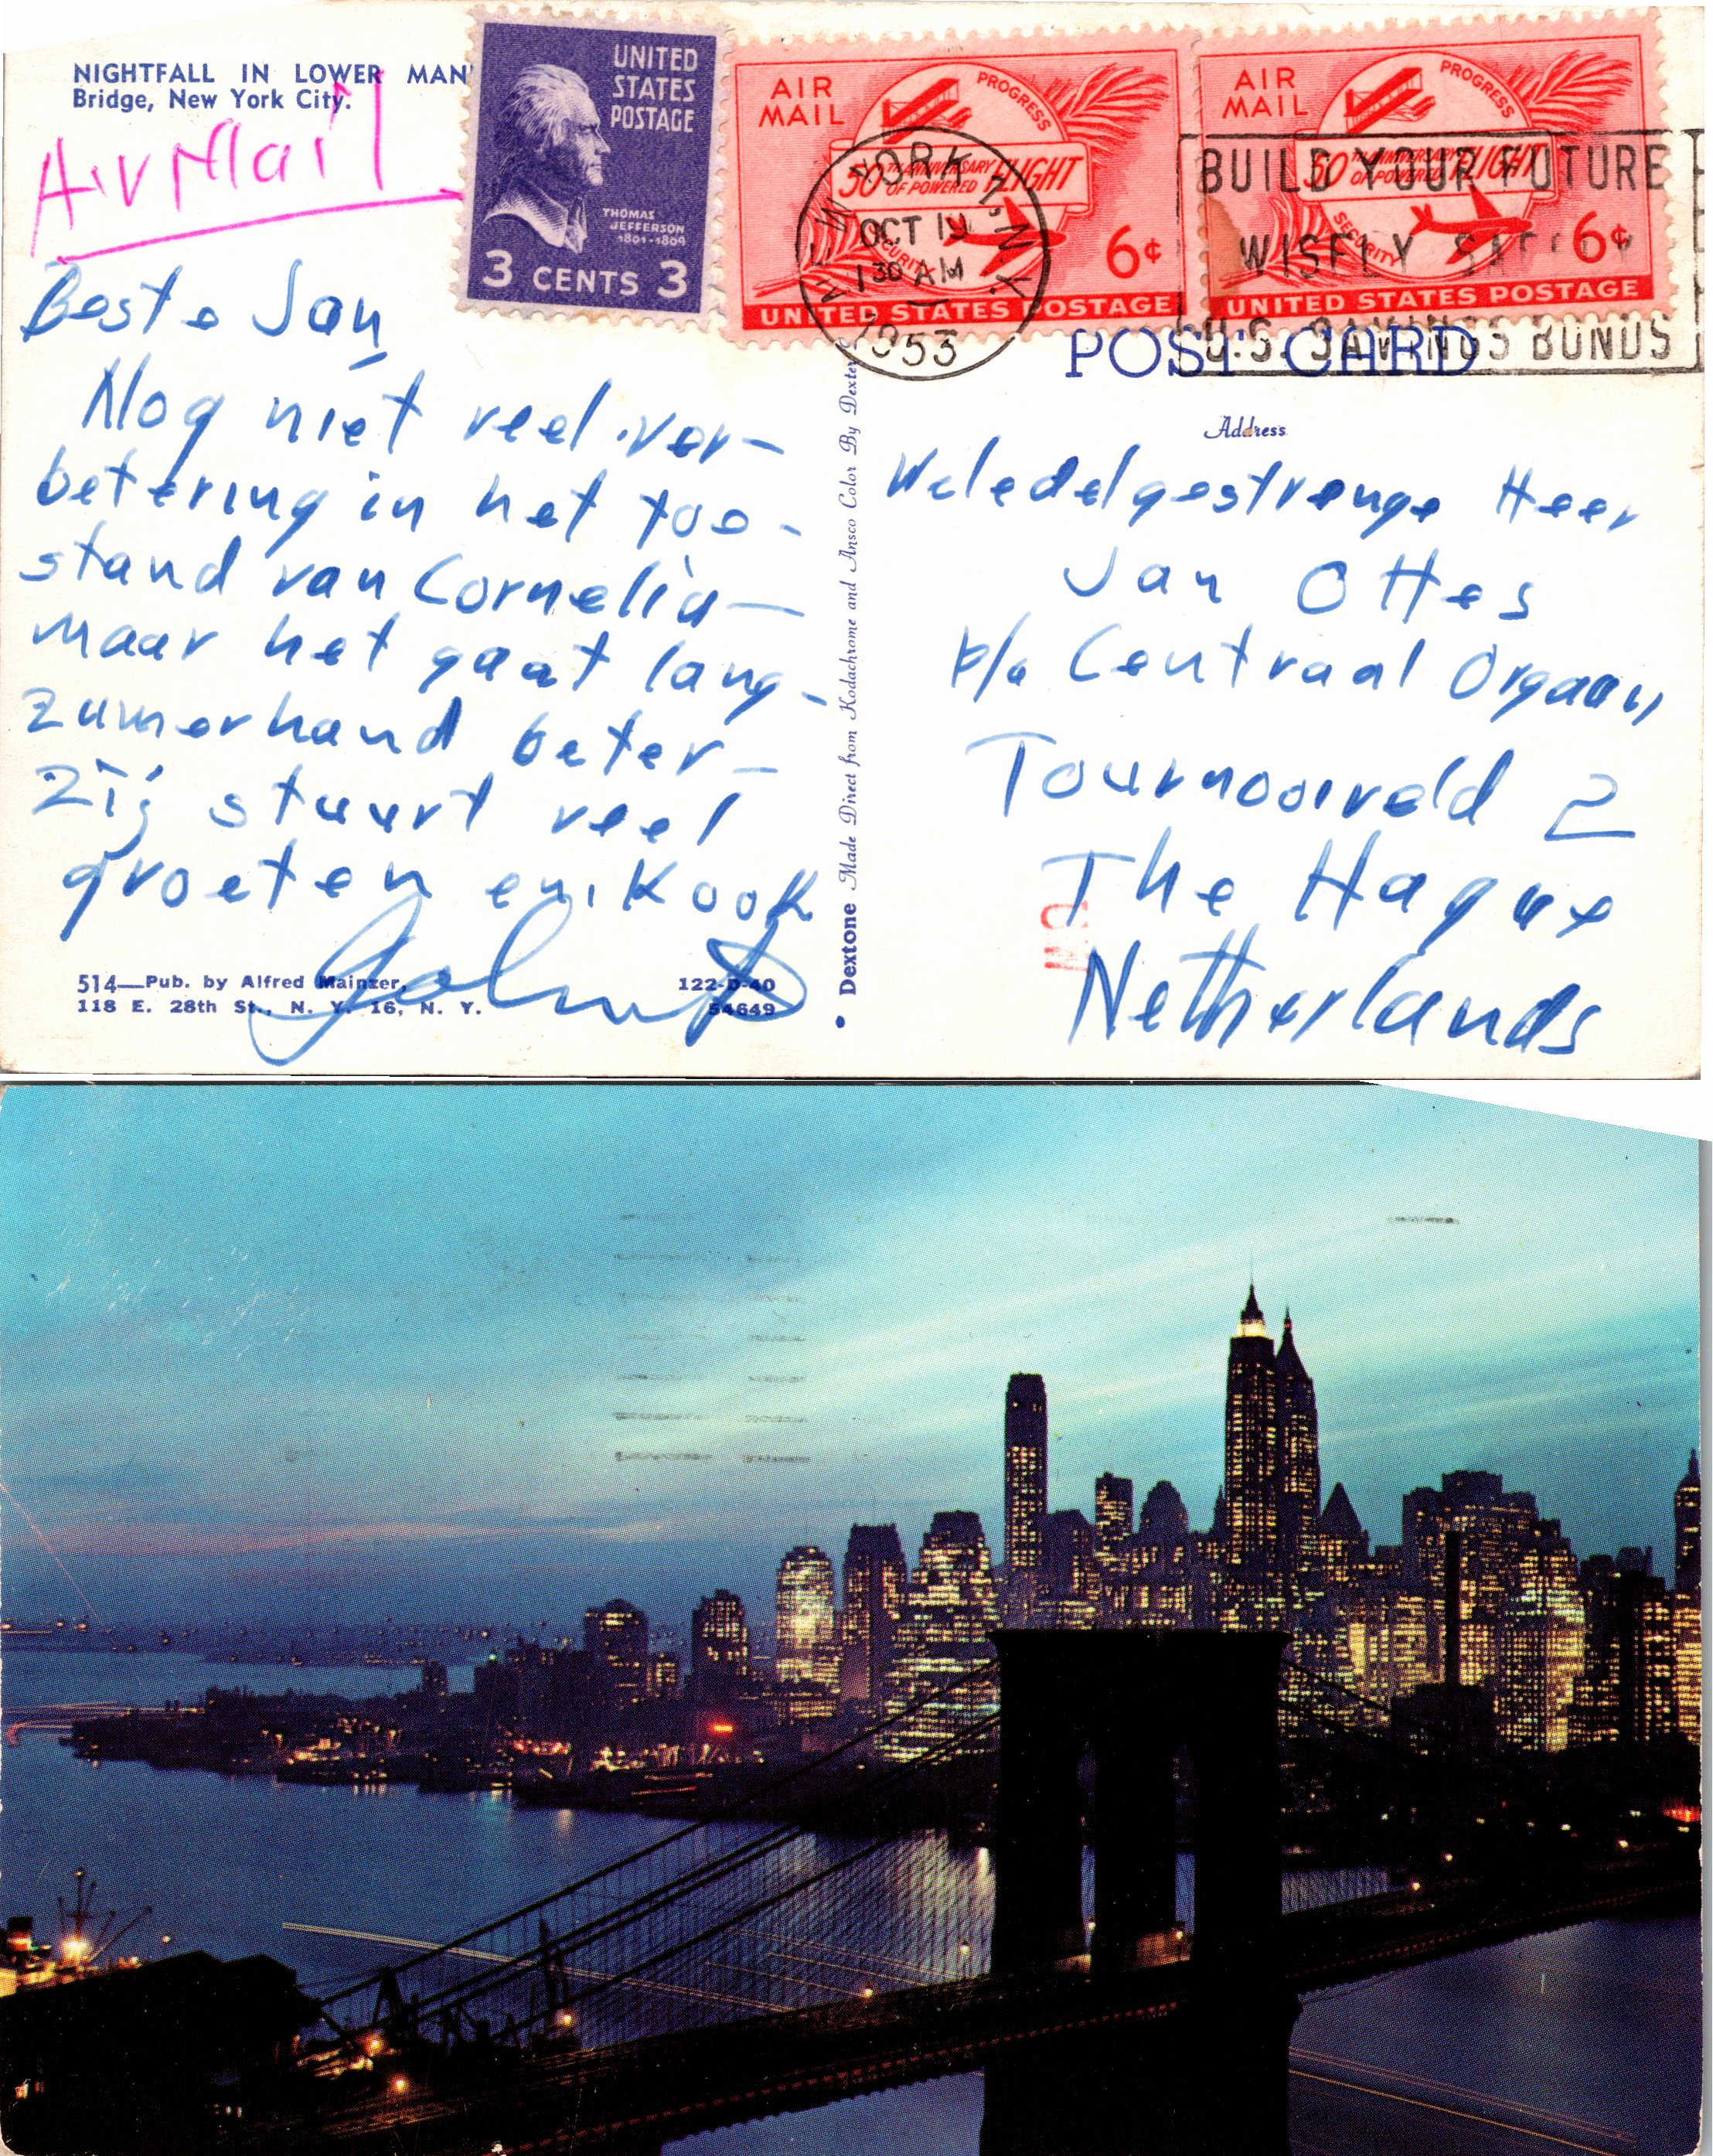 NIGHTFALL IN LOWER MAN
Bridge, New York City.
Air Mail
UNITED
STATES
POSTAGE
THOMAS
JEFFERSON
1801-1809
3 CENTS 3
AIR
MAIL
PROGRESS
50TH ANNIVERSARY
OF POWERED FLIGHT
SECURITY
6¢
UNITED STATES POSTAGE
AIR
MAIL
PROGRESS
50TH ANNIVERSARY
OF POWERED FLIGHT
SECURITY
6¢
UNITED STATES POSTAGE
NEW YORK 7, N.Y.
OCT 19
1 30 AM
1953
BUILD YOUR FUTURE
WISELY
U.S. SAVINGS BONDS
POST CARD
Address
Beste Jan
Nog niet veel ver-
betering in het toe-
stand van Cornelia—
maar het gaat lang-
zumerhand beter—
Zij stuurt veel
groeten en ik ook
514—Pub. by Alfred Mainzer,
118 E. 28th St., N. Y. 16, N. Y.
122-D-40
54649
Dextone Made Direct from Kodachrome and Ansco Color By Dexter
Weledelgestrenge Heer
Jan Ottes
p/a Centraal Orgaan
Tournooiveld 2
The Hague
Netherlands